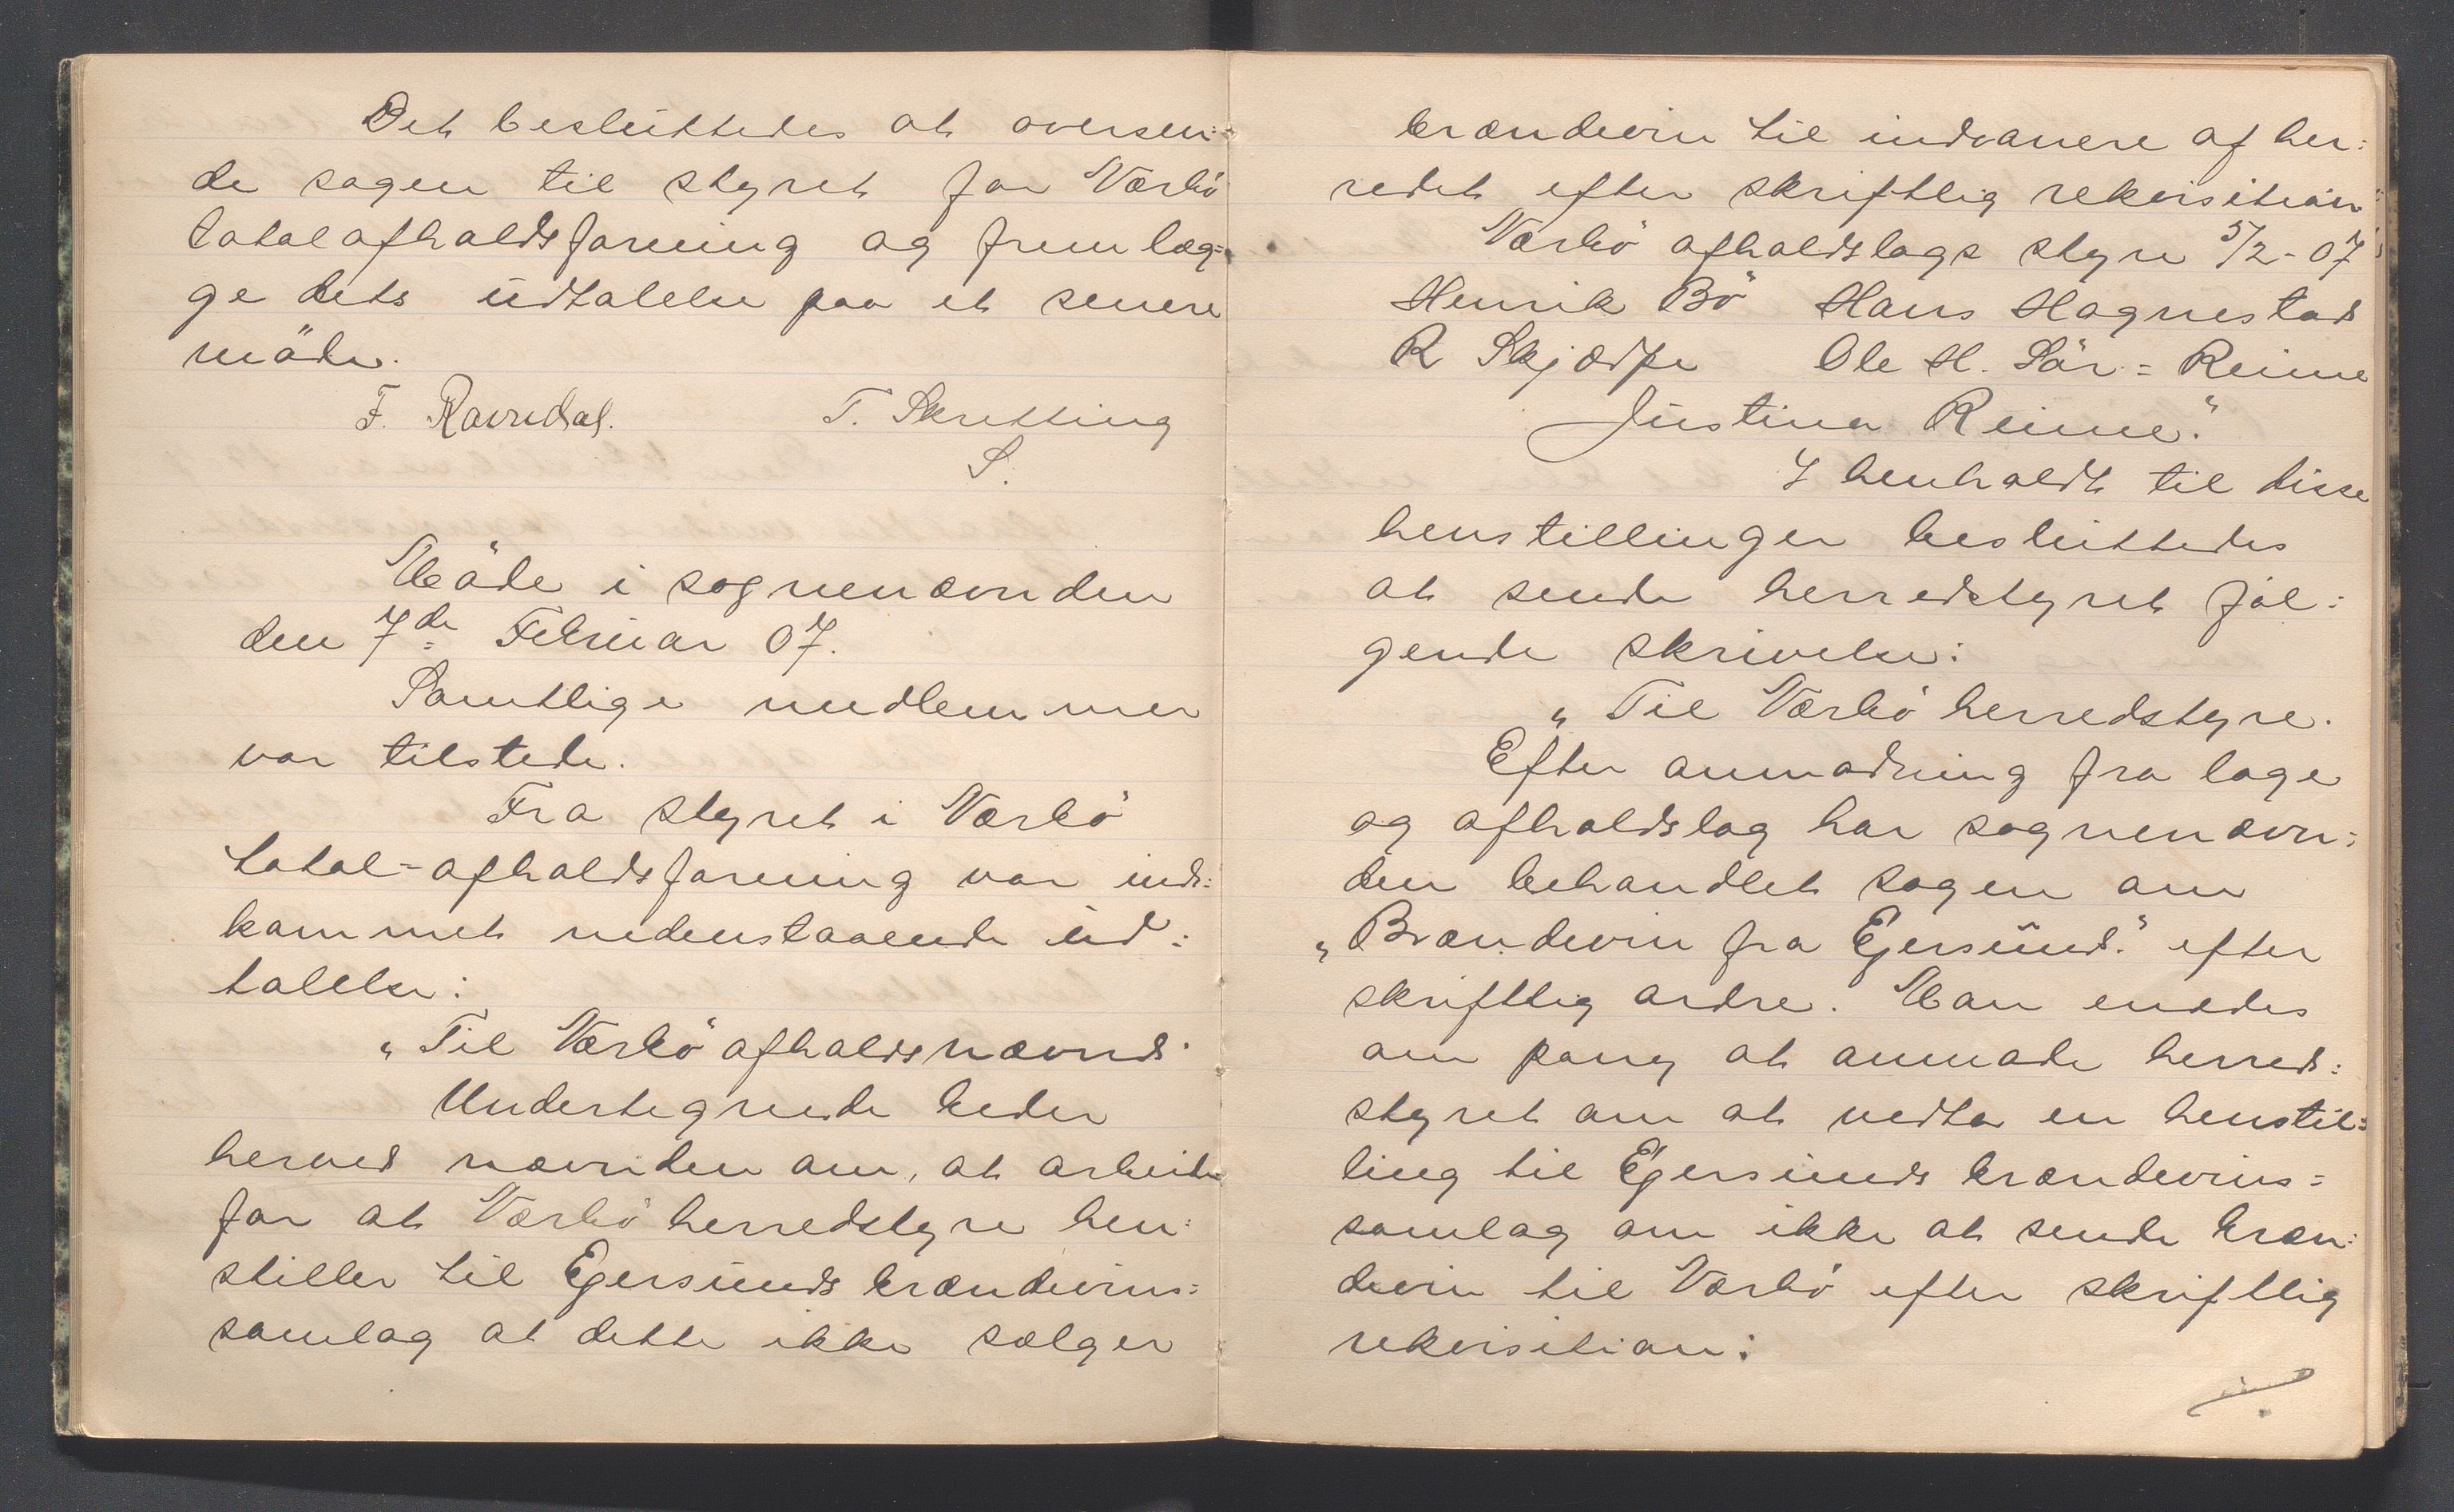 Det besluttedes at oversen=
de sagen til styret for Værbö
totalafholdsforening og fremlæg=
ge dets udtalelse paa et senere
möde.
F. Ravndal. T. Skretting
S.
Möde i sognenævnden
den 7de Februar 07.
Samtlige medlemmer
var tilstede.
Fra styret i Værbö
total=afholdsforening var ind=
kommet nedenstaaende ud=
talelse:
„Til Værbö afholdsnævnd.
Undertegnede beder
herved nævnden om, at arbeide
for at Værbö herredstyre hen=
stiller til Egersunds brændevins=
samlag at dette ikke sælger
brændevin til indvanere af her=
redet efter skriftlig rekvisition
Værbö afholdslags styre 5/2-07
Henrik Bö Hans Hagnestad
R Skjærpe Ole H. Sör=Reime
Justina Reime."
I henholdt til disse
henstillinger besluttedes
at sende herredstyret föl=
gende skrivelse:
„Til Værbö herredstyre.
Efter anmodning fra loge
og afholdslag har sognenævn=
den behandlet sagen om
„Brændevin fra Egersund." efter
skriftlig ordre. Man enedes
om paany at anmode herreds=
styret om at vedta en henstil=
ling til Egersunds brændevins=
samlag om ikke at sende bræn=
devin til Værbö efter skriftlig
rekvisition: